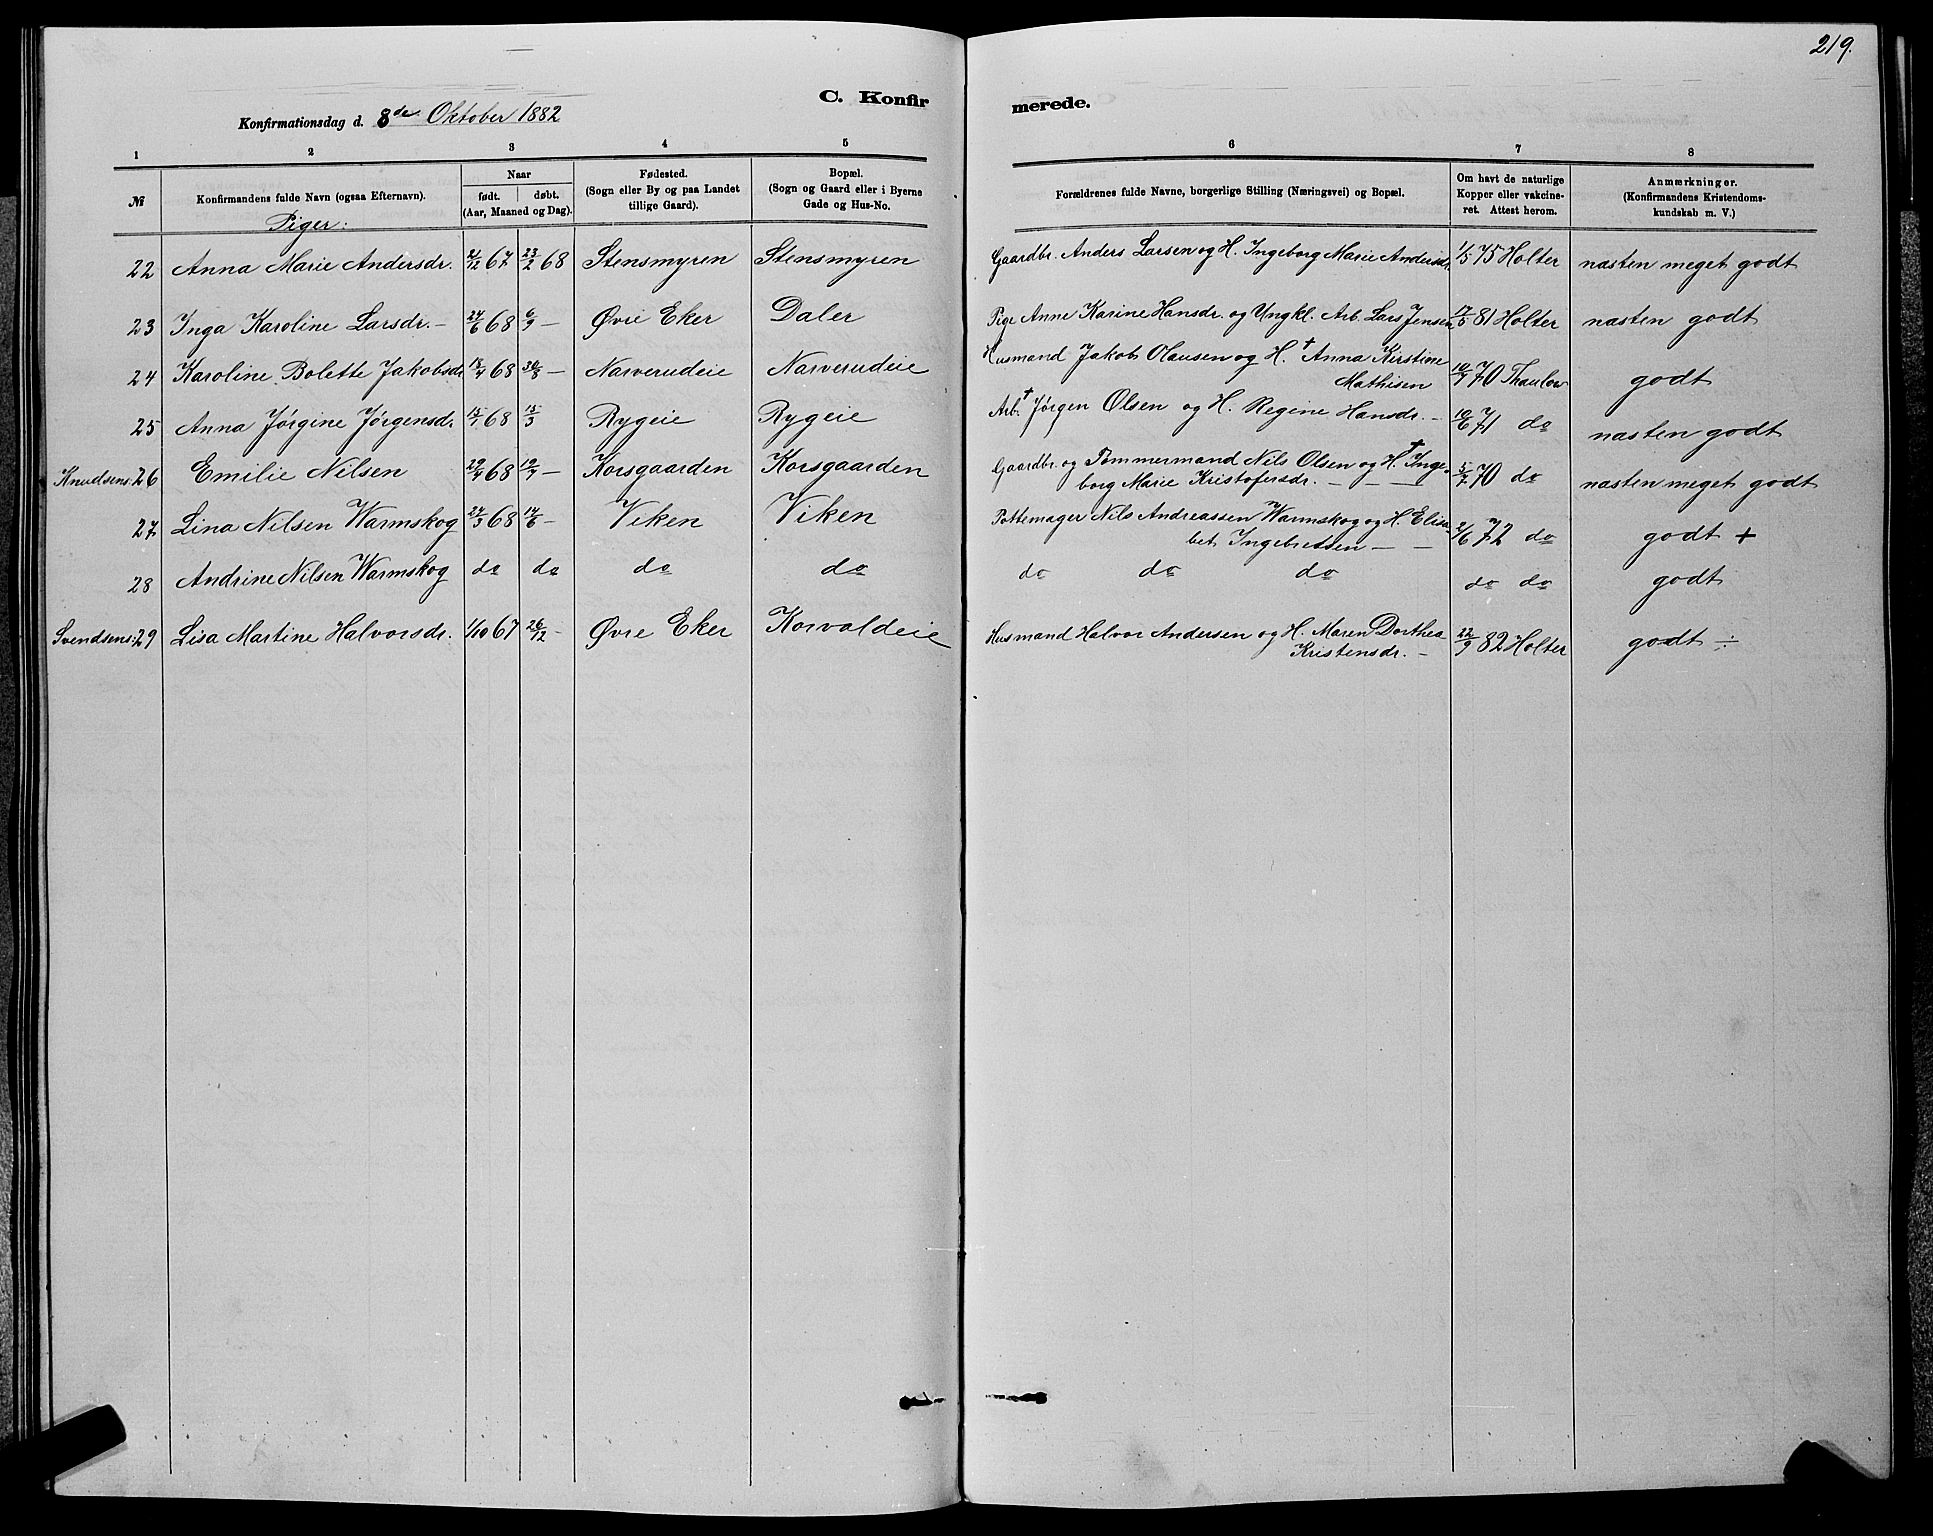 219.
C. Konfirmerede.
Konfirmationsdag d. 8de Oktober 1882
1 2 3 4 5 6 7 8
№ Konfirmandens fulde Navn (ogsaa Efternavn). Naar født. døbt. (Aar, Maaned og Dag). Fødested. (Sogn eller By og paa Landet tillige Gaard). Bopæl. (Sogn og Gaard eller i Byerne Gade og Hus-No. Forældrenes fulde Navne, borgerlige Stilling (Næringsvei) og Bopæl. Om havt de naturlige Kopper eller vakcineret. Attest herom. Anmærkninger. (Konfirmandens Kristendomskundskab m. V.)
Piger:
22 Anna Marie Andersdr. 21/12 67 23/2 68 Stensmyren Stensmyren Gaardbr. Anders Larsen og H. Ingeborg Marie Andersdr. 1/5 75 Holter næsten meget godt
23 Inga Karoline Larsdr. – 24/6 68 6/9 – Øvre Eker Daler Pige Anne Karine Hansdr. og Ungkl. Arb. Lars Jensen 17/5 81 Holter næsten godt
24 Karoline Bolette Jakobsdr. 13/4 68 30/8 – Narverudeie Narverudeie Husmand Jakob Olausen og H. † Anna Kirstine
Mathisen 10/7 70 Thaulow godt
25 Anna Jørgine Jørgensdr. 15/1 68 15/3 Rygeie Rygeie Arb. † Jørgen Olsen og H. Regine Hansdr. – 10/6 71 do næsten godt
Knudsens: 26 Emilie Nilsen 29/4 68 19/7 – Korsgaarden Korsgaarden Gaardbr. og Tømmermand Nils Olsen og H. † Inge-
borg Marie Kristofersdr. – – – 5/7 70 do næsten meget godt
27 Lina Nilsen Warmskog 24/3 68 14/6 – Viken Viken Pottemager Nils Andreassen Warmskog og H. Elisa
bet Ingebretsen – – 2/6 72 do godt +
28 Andrine Nilsen Warmskog do do do do do do do do do godt
Svendsens: 29 Lisa Martine Halvorsdr. 1/10 67 26/12 – Øvre Eker Korvaldeie Husmand Halvor Andersen og H. Maren Dorthea
Kristensdr. – 22/9 82 Holter godt ÷